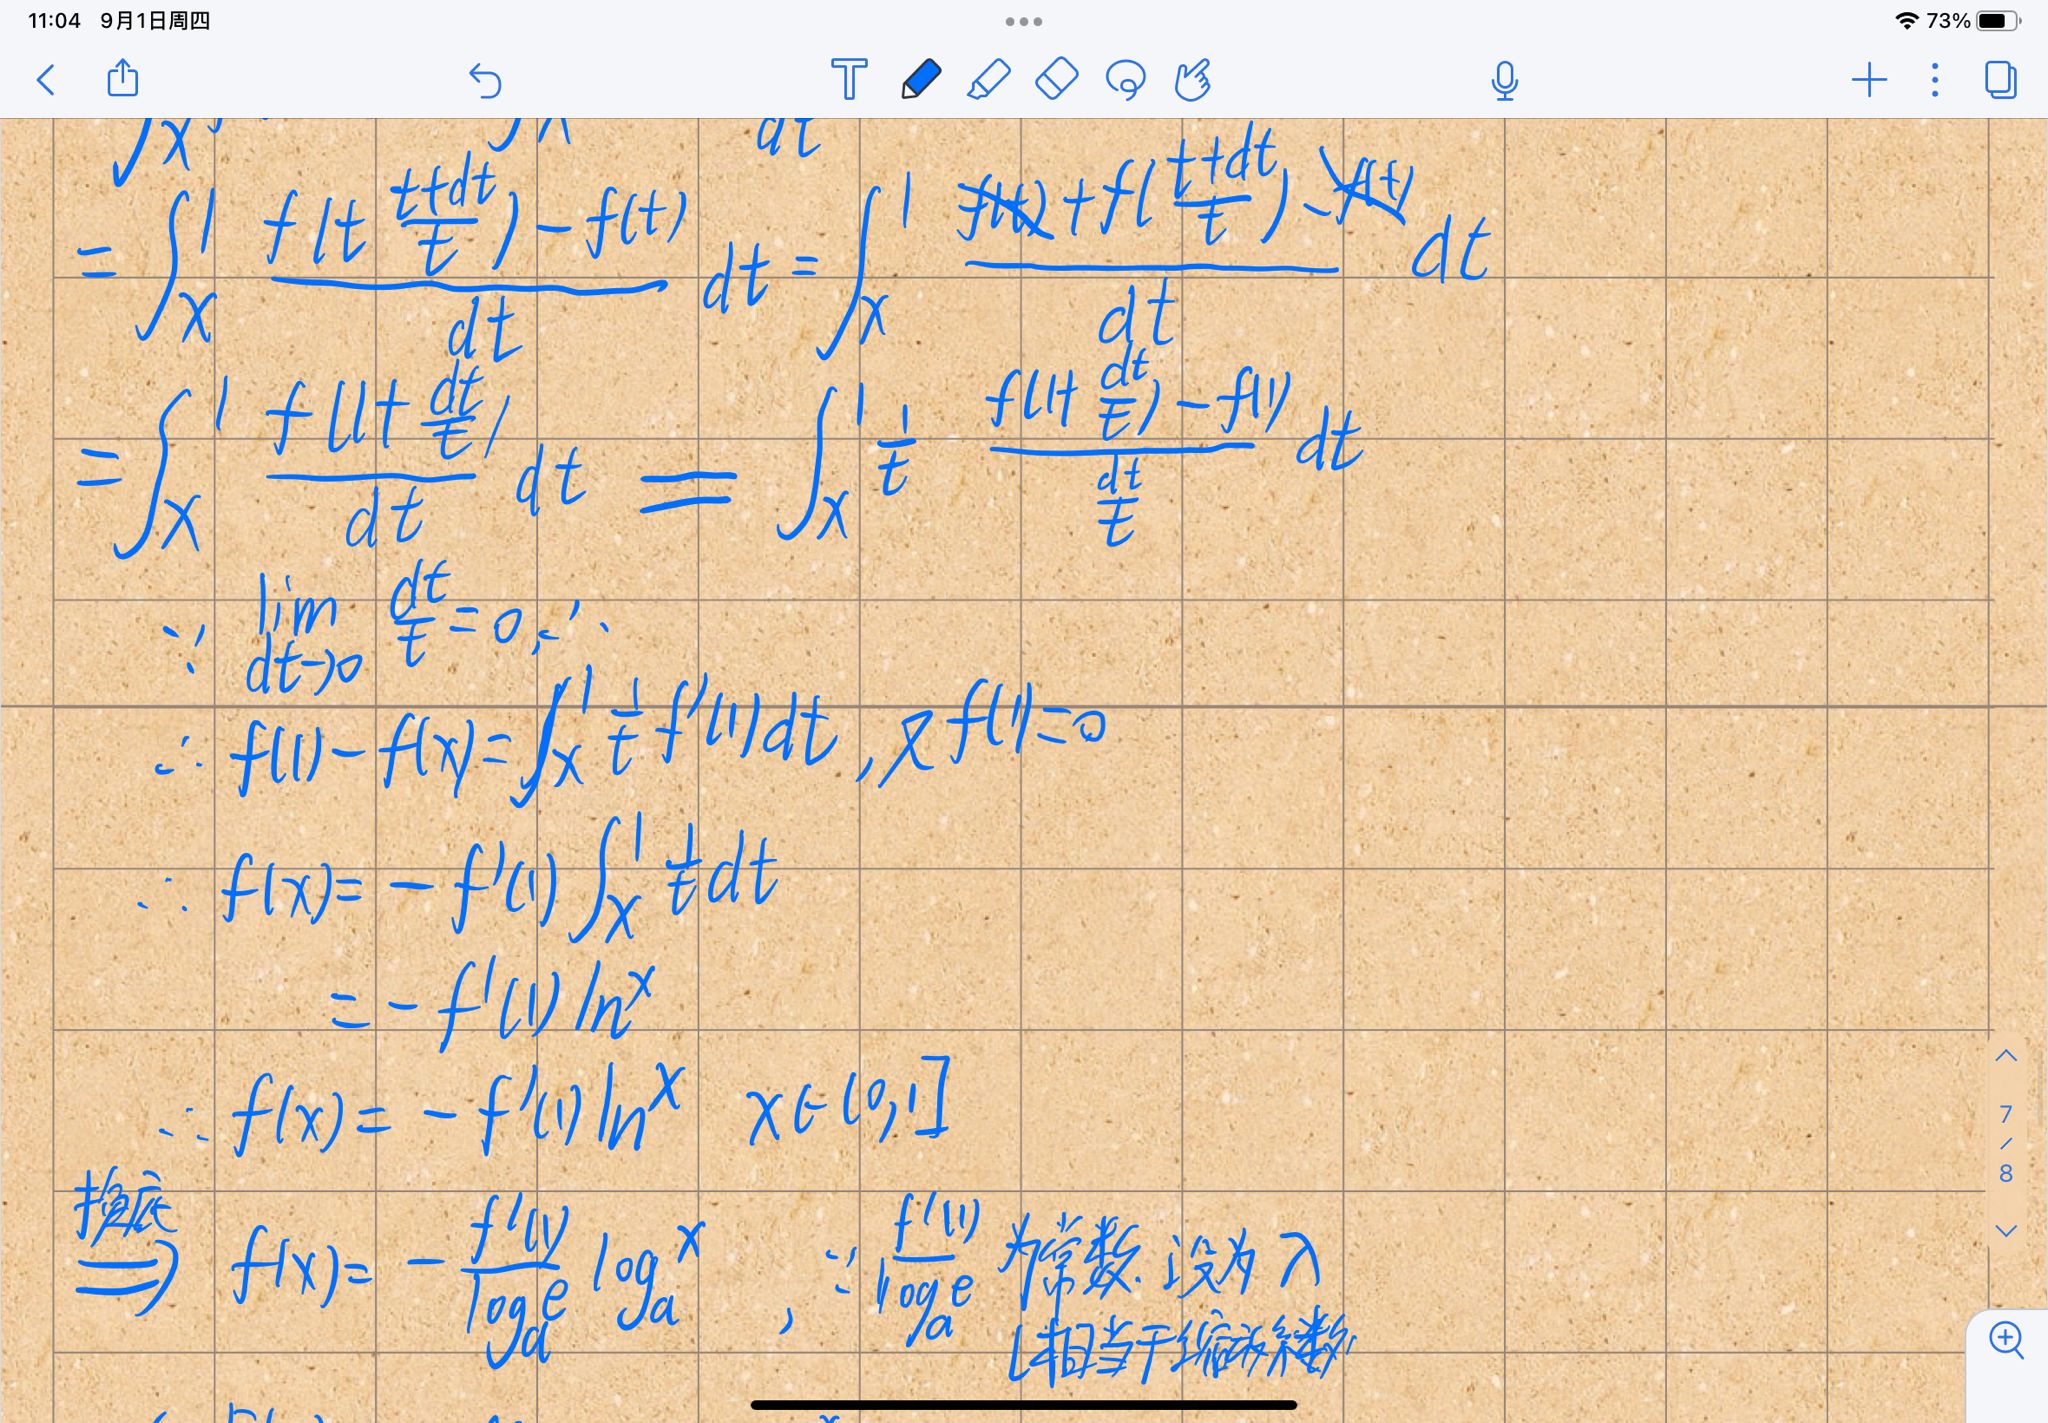 11:04 9月1日周四 73%
∫x dt
= ∫_x^1 (f(t (t+dt)/t) - f(t))/dt dt = ∫_x^1 (f(t) + f((t+dt)/t) - f(t))/dt dt
= ∫_x^1 f(1+dt/t)/dt dt = ∫_x^1 1/t (f(1+dt/t) - f(1))/(dt/t) dt
∵ lim_{dt→0} dt/t = 0, ∴
∴ f(1) - f(x) = ∫_x^1 1/t f'(1) dt , 又 f(1)=0
∴ f(x) = - f'(1) ∫_x^1 1/t dt
= - f'(1) ln^x
∴ f(x) = - f'(1) ln^x x∈(0,1]
换底
⇒ f(x) = - f'(1)/log_a^e log_a^x , ∵ f'(1)/log_a^e 为常数. 设为 λ
(相当于缩放系数
7
/
8